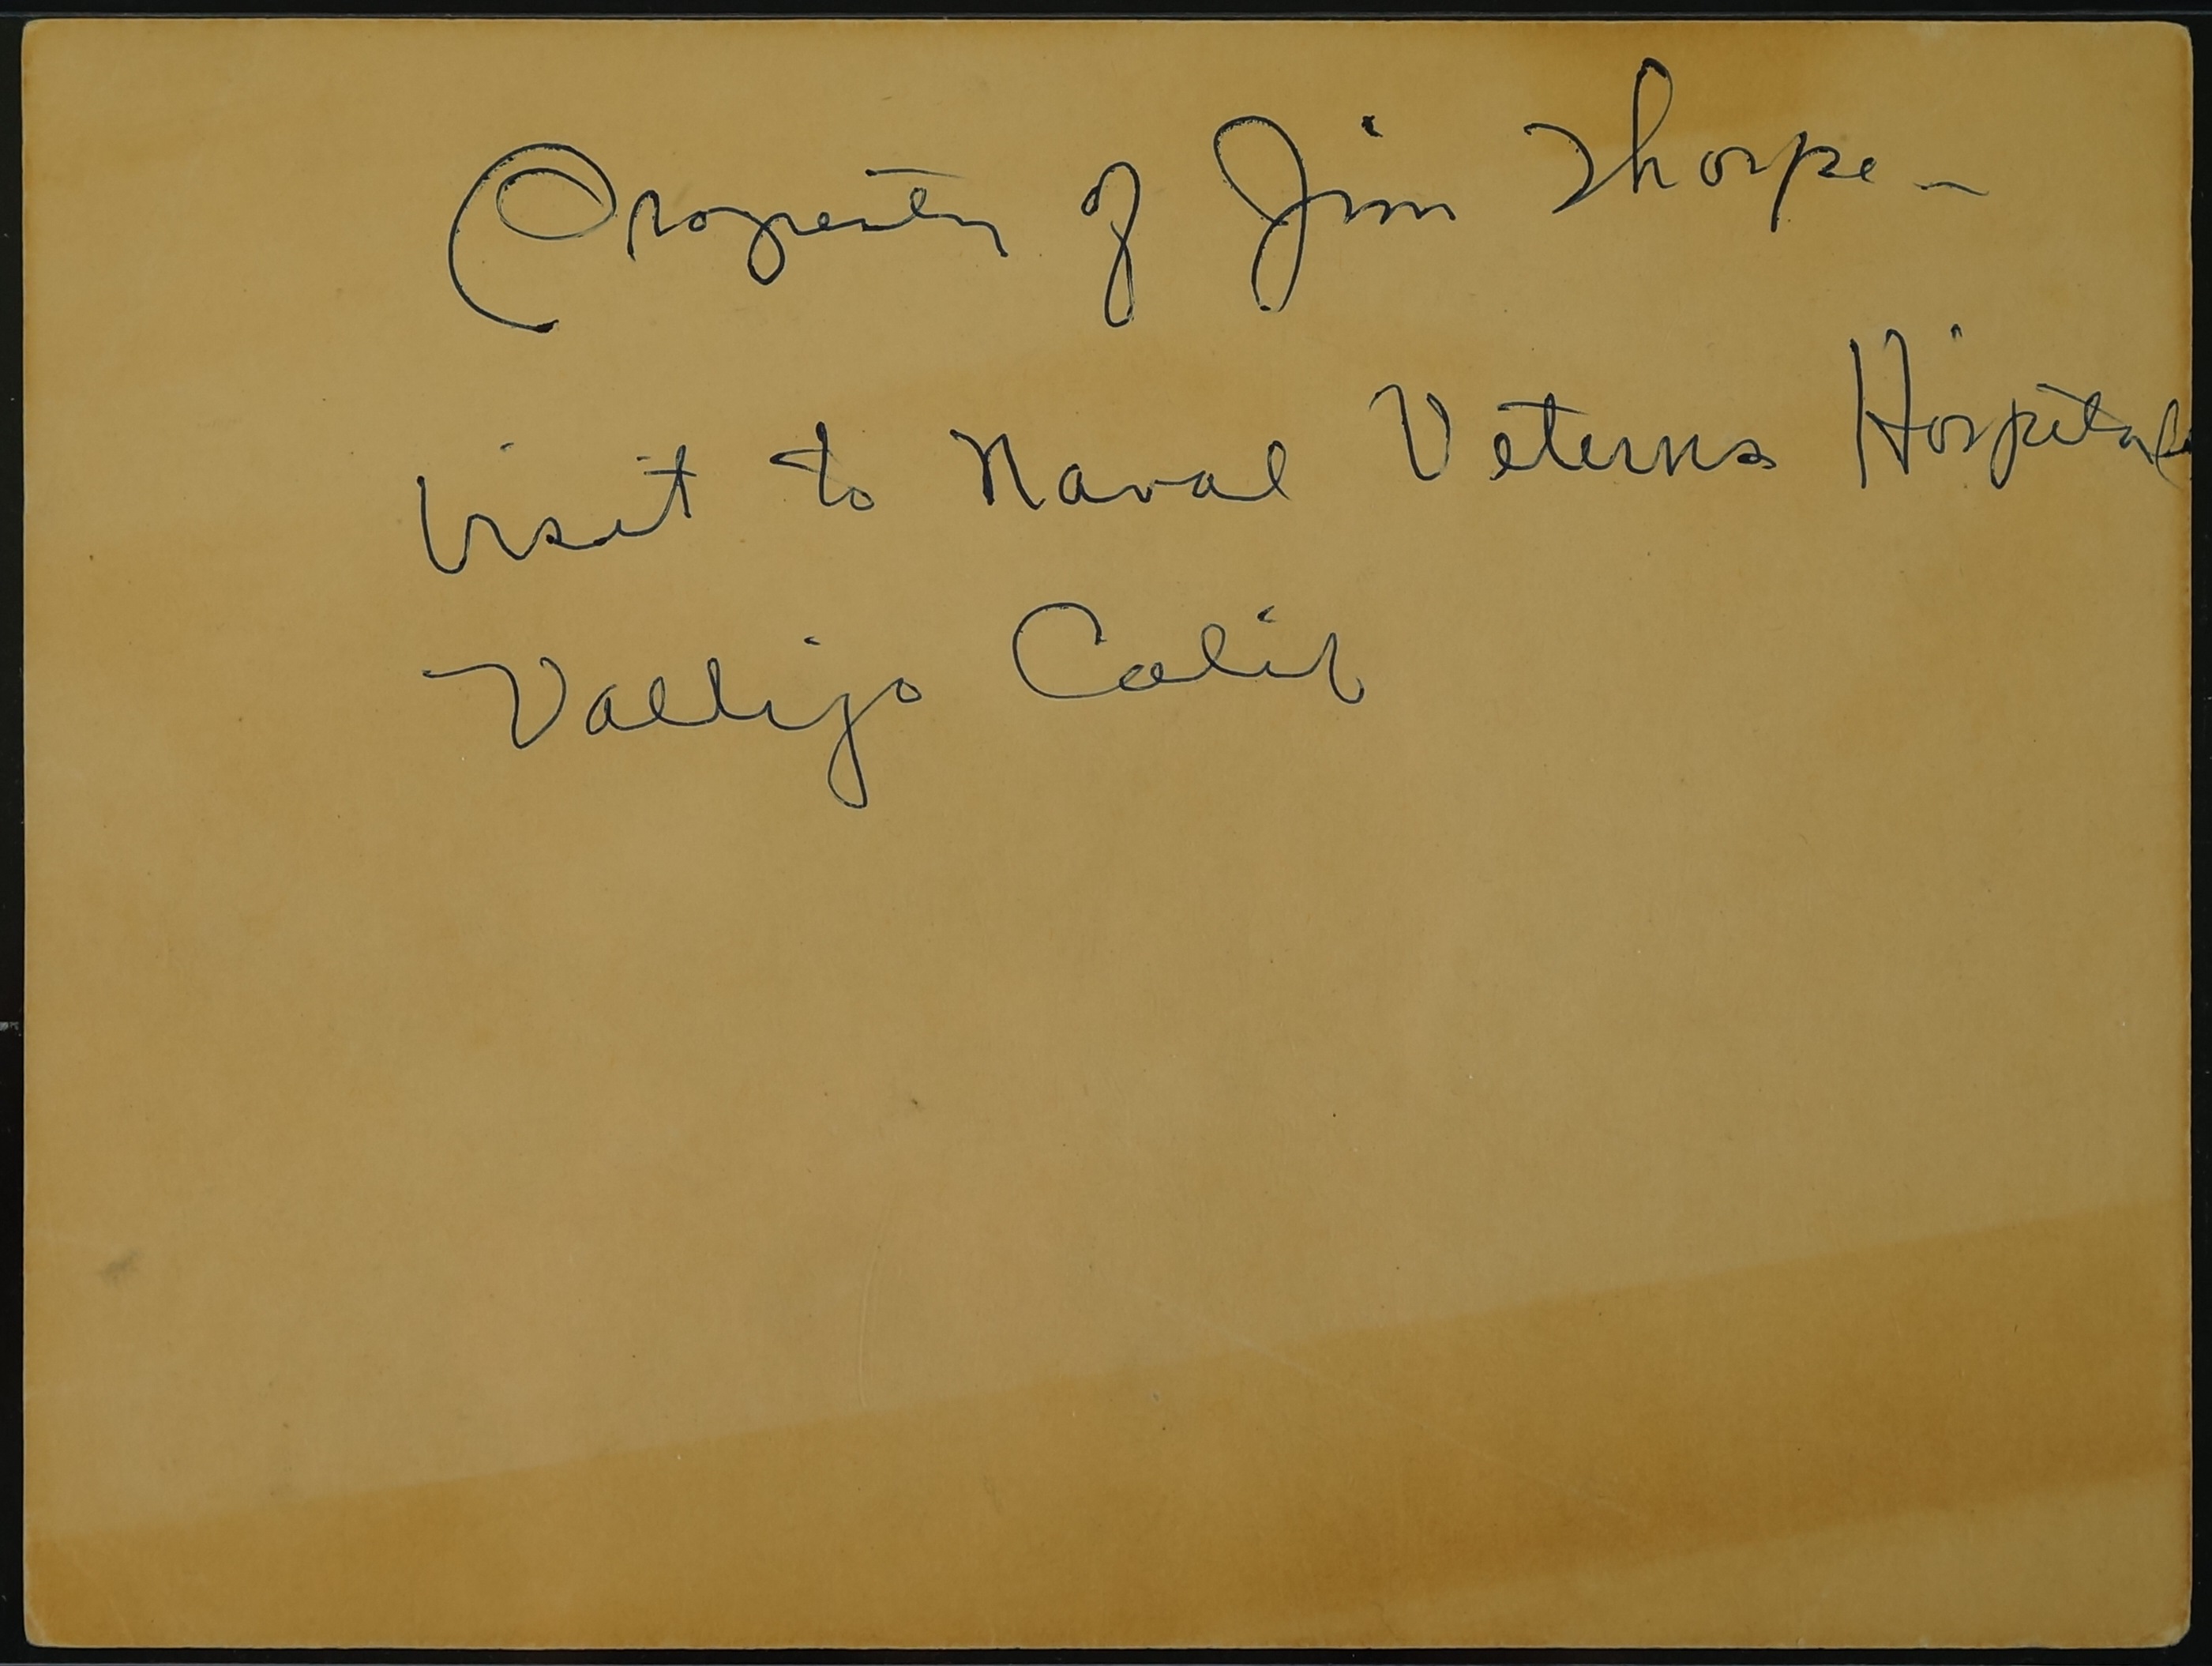 Property of Jim Thorpe -
Visit to Naval Veterns Hospital
Vallijo Calif